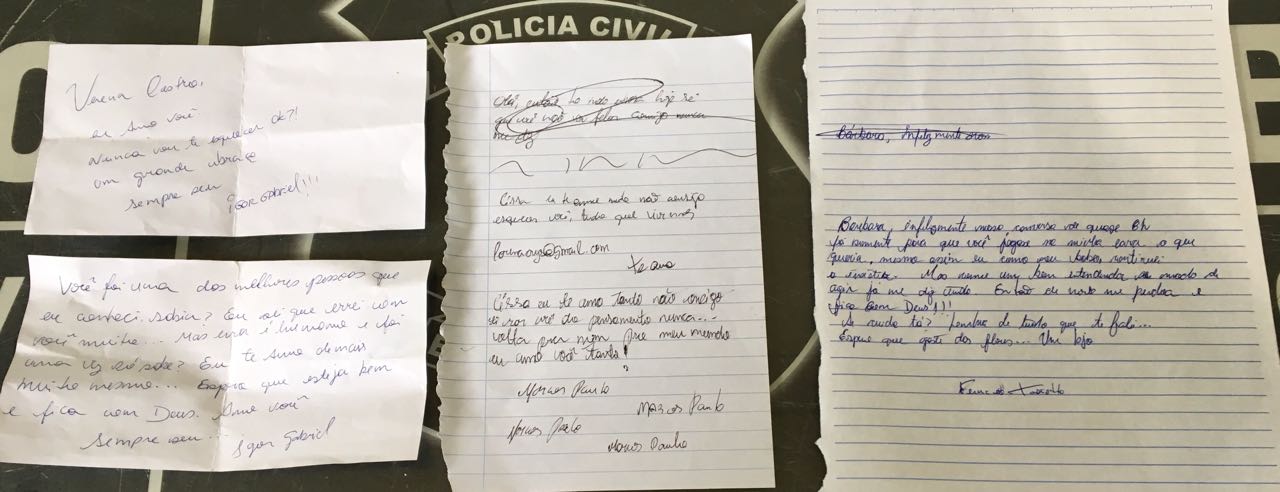 POLICIA CIVIL
Verena Castro,
eu Amo você
Nunca vou te esquecer ok?!
um grande abraço
sempre seu Igor Gabriel!!!
Você foi uma das melhores pessoas que
eu conheci. sabia? Eu sei que errei com
você muito... Mas errar é humano e foi
uma vez só sabe? Eu te Amo demais
muito mesmo... Espero que esteja bem
e fica com Deus. Amo você
Sempre seu... Igor Gabriel
hoje só
que você não vai falar comigo nunca
Cissa eu te amo não consigo
esquecer você, tudo que vivemos
@gmail.com
te amo
Cissa eu te amo tanto não consigo
tirar você do pensamento nunca...
volta por mim
eu amo você
Marcos Paulo
Marcos Paulo
Marcos Paulo
Marcos Paulo
Bárbara, infelizmente
Bárbara, infelizmente nossa conversa
foi somente para que você jogasse na minha cara o que
queria, mesmo assim eu como sou continuei
a insistir. Mas o modo de
agir já me diz tudo. Então de novo me perdoa e
fica com Deus!!!
Se cuida tá? Lembra de tudo que te falei...
Espero que goste das flores... Um bjo